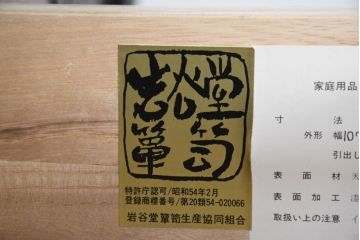 岩谷堂箪笥
特許庁認可/昭和54年2月
登録商標番号/第20類54-020066
岩谷堂箪笥生産協同組合
家庭用品
寸法
外形 幅107
引出し
表面材 天
表面加工 漆
取扱い上の注意 イ